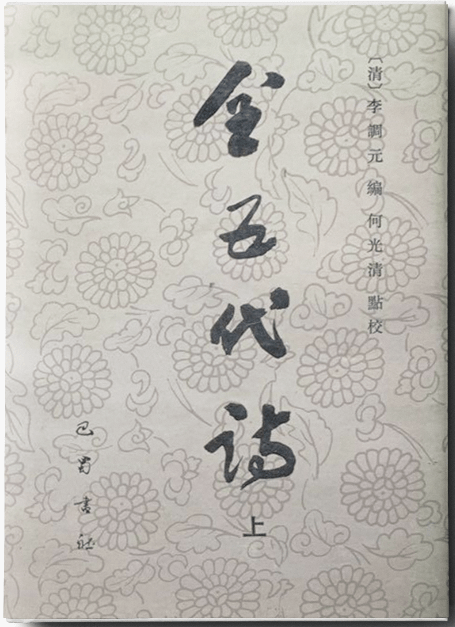 〔清〕李調元 編 何光清 點校
全五代诗
上
巴蜀書社